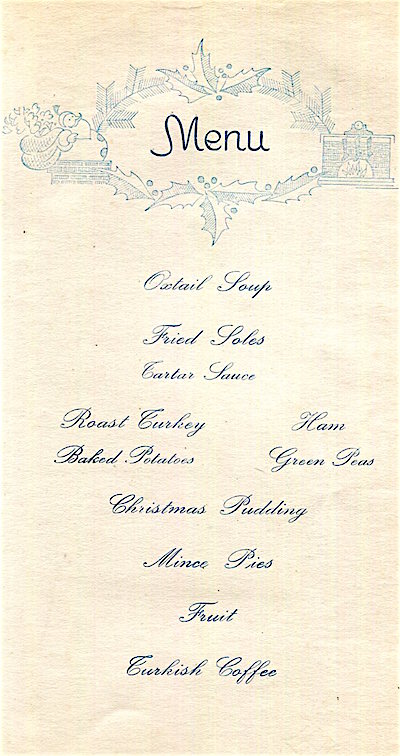 Menu
Oxtail Soup
Fried Soles
Tartar Sauce
Roast Turkey Ham
Baked Potatoes Green Peas
Christmas Pudding
Mince Pies
Fruit
Turkish Coffee